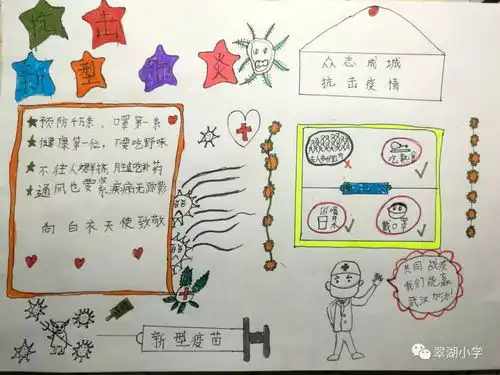 抗击
新型肺炎
众志成城
抗击疫情
预防千万条，口罩第一条
健康第一位，不要吃野味
不往人群挤，
通风也要紧，疾病无踪影
向白衣天使致敬
吃熟食
戴口罩
新型疫苗
共同战疫
我们能赢
武汉加油！
翠湖小学